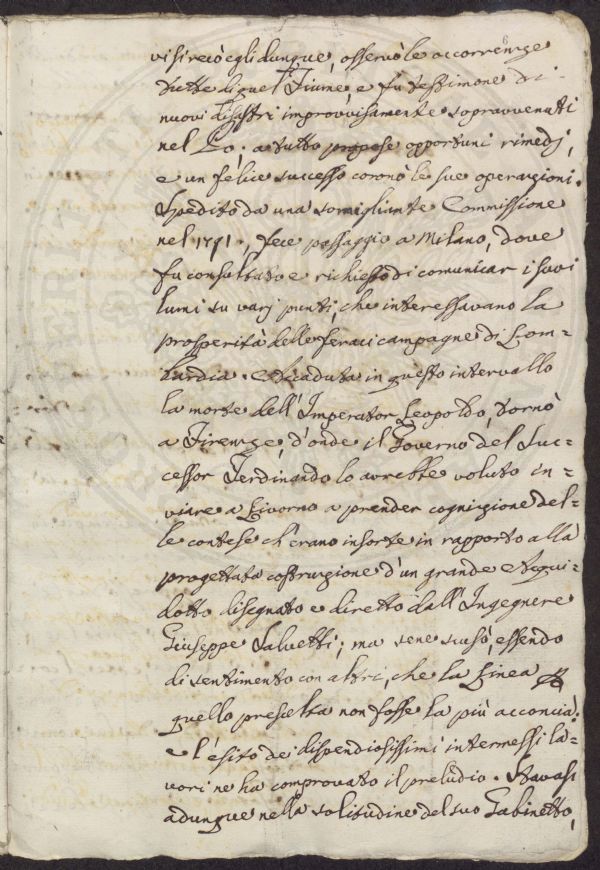 visi recò egli dunque, osservò le occorrenze
tutte di quel Fiume, e fu testimone di
nuovi disastri improvvisamente sopravvenuti
nel Po; a tutto propose opportuni rimedj,
e un felice successo coronò le sue operazioni.
Spedito da una somigliante Commissione
nel 1791., fece passaggio a Milano, dove
fu consultato e richiesto di comunicar i suoi
lumi su varj punti, che interessavano la
prosperità delle feraci campagne di Lom-
bardia. Accaduta in questo intervallo
la morte dell'Imperator Leopoldo, tornò
a Firenze, d'onde il Governo del Suc-
cessor Ferdinando lo avrebbe voluto in-
viare a Livorno a prender cognizione del-
le contese ch'erano insorte in rapporto alla
progettata costruzione d'un grande Aqui-
dotto disegnato e diretto dall'Ingegnere
Giuseppe Salvetti; ma sene scusò, essendo
di sentimento con altri, che la Linea
quello prescelta non fosse la più acconcia:
e l'esito de' dispendiosissimi intermessi la-
vori ne ha comprovato il preludio. Stavasi
adunque nella solitudine del suo Gabinetto,